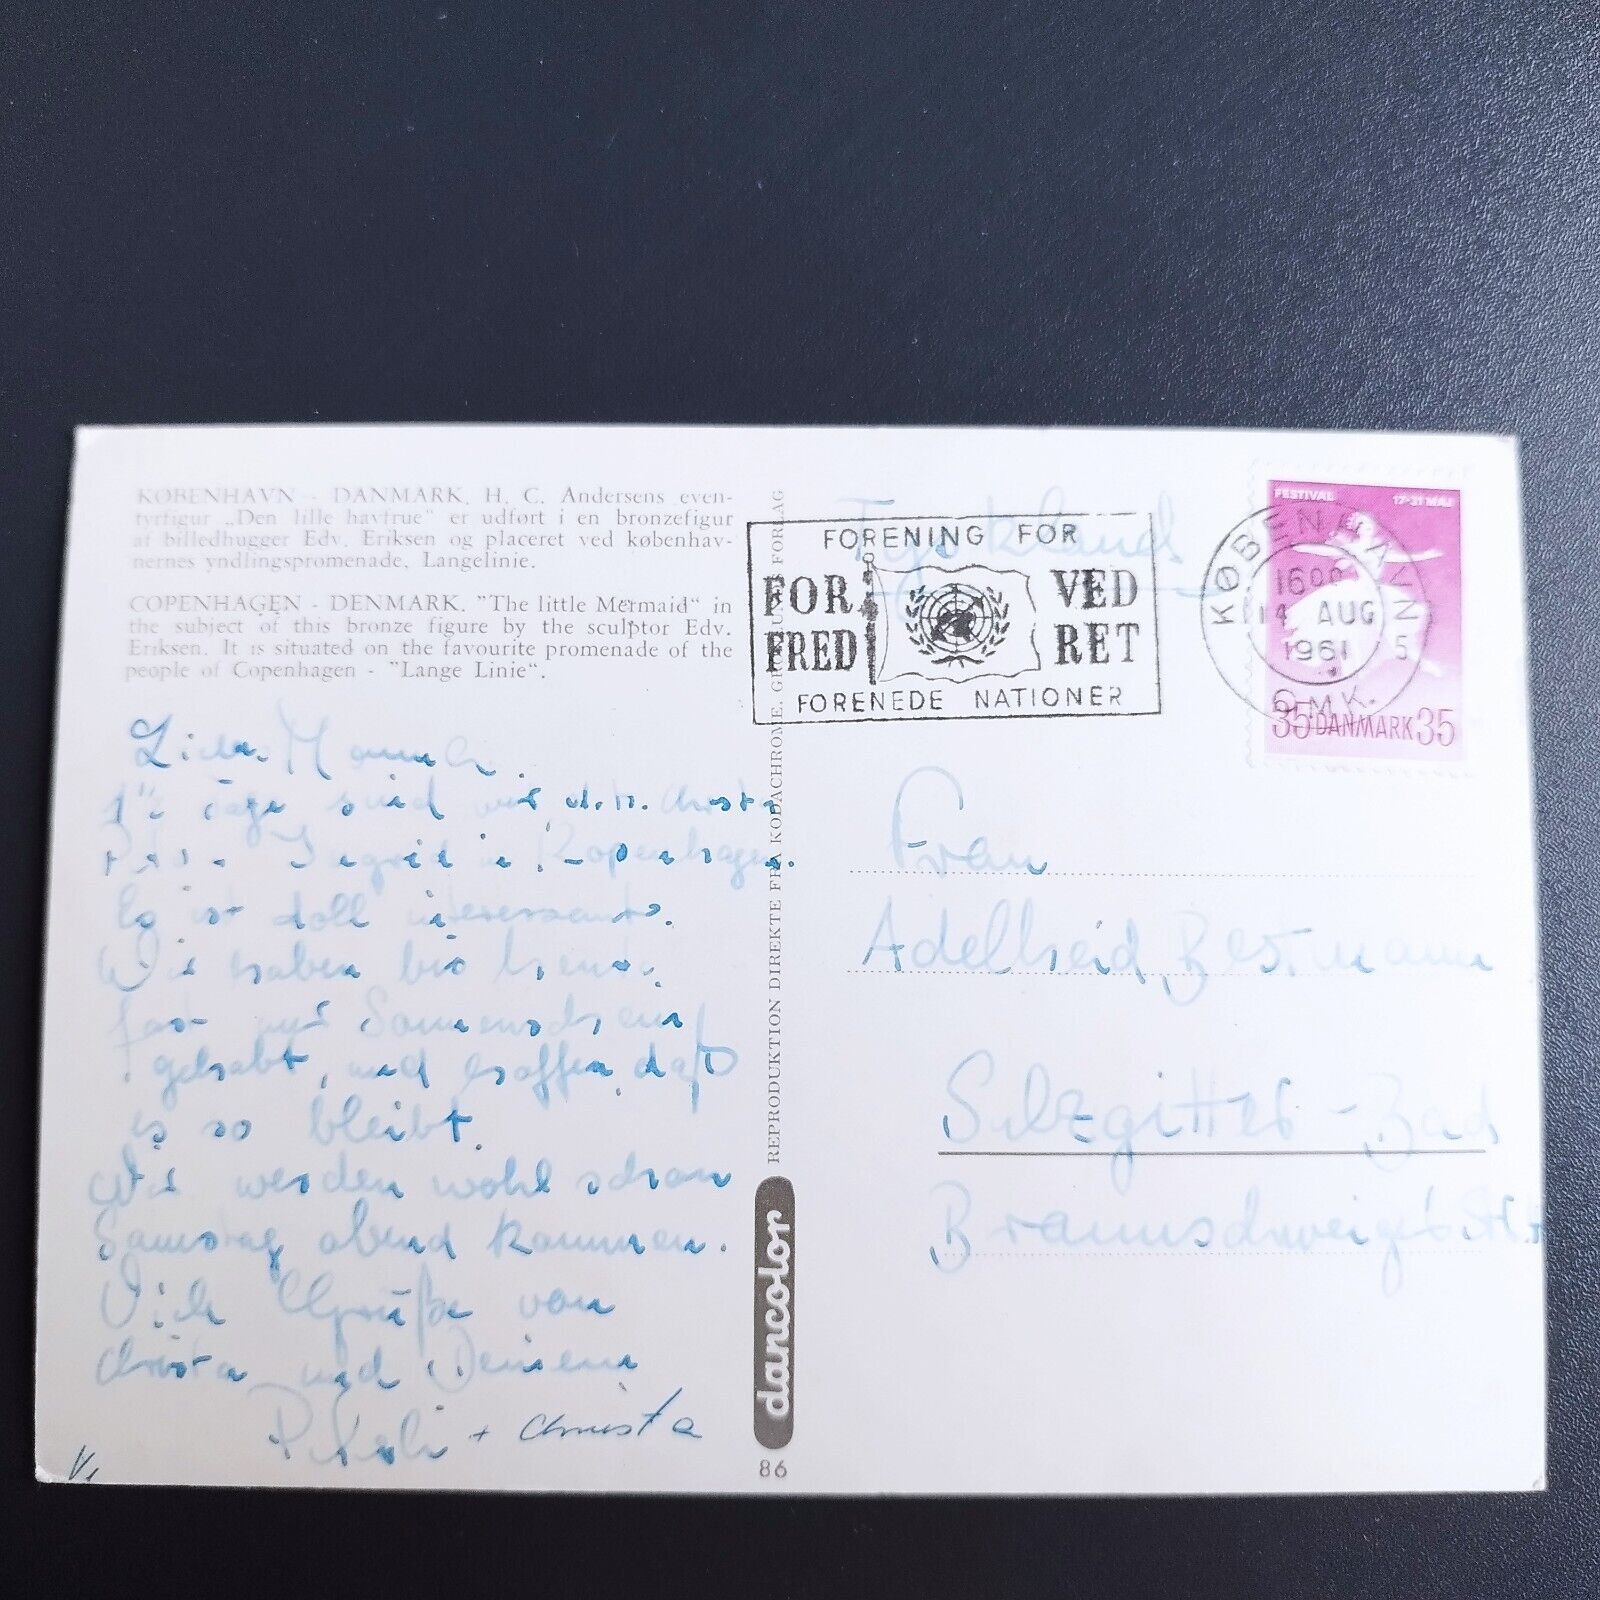 KØBENHAVN - DANMARK. H. C. Andersens even-
tyrfigur „Den lille havfrue" er udført i en bronzefigur
af billedhugger Edv. Eriksen og placeret ved københav-
nernes yndlingspromenade, Langelinie.
COPENHAGEN - DENMARK. "The little Mermaid" in
the subject of this bronze figure by the sculptor Edv.
Eriksen. It is situated on the favourite promenade of the
people of Copenhagen - "Lange Linie".
Tage sind wir
Ingrid in Kopenhagen.
Es ist doll interessant.
Wir haben bis heute
fast nur Sonnenschein
gehabt, und hoffen, daß
es so bleibt.
Wir werden wohl schon
Samstag abend kommen.
Viele Grüße von
Christa und Deinem
+ Christa
REPRODUKTION DIREKTE FRA KODACHROME. FORLAG
dancolor
86
Tyskland
FORENING FOR
FOR FRED
VED RET
FORENEDE NATIONER
KØBENHAVN
1600
14 AUG
1961
5
OMK.
FESTIVAL 17-31 MAJ
35 DANMARK 35
Frau
Adelheid Bestmann
Salzgitter-Bad